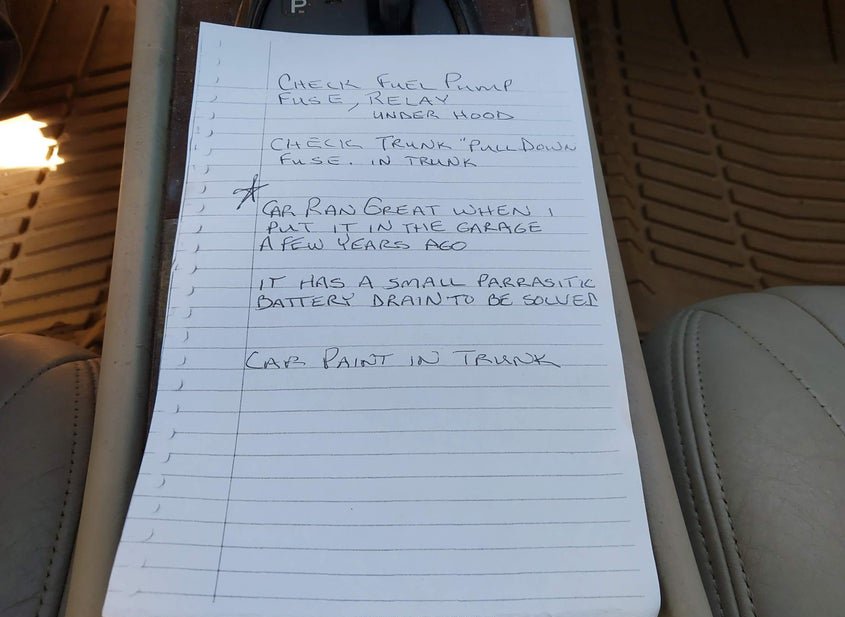 P
CHECK FUEL PUMP
FUSE, RELAY
UNDER HOOD
CHECK TRUNK "PULL DOWN
FUSE. IN TRUNK
CAR RAN GREAT WHEN I
PUT IT IN THE GARAGE
A FEW YEARS AGO
IT HAS A SMALL PARRASITIC
BATTERY DRAIN TO BE SOLVED
CAR PAINT IN TRUNK